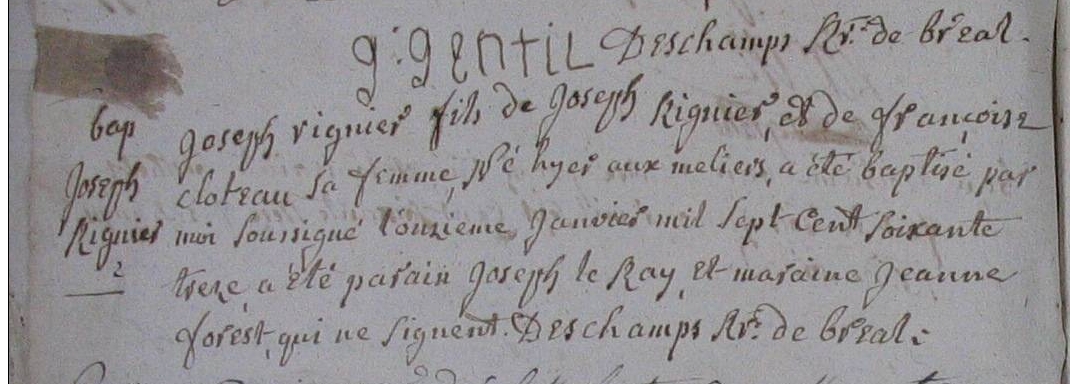 g: gentil Deschamps Rr. de breal.
bap
Joseph
Rignier
2
Joseph rignier fils de Joseph Rignier, et de françoise
cloteau sa femme, né hyer aux meliers, a été baptisé par
moi soussigné l'onzieme Janvier mil sept cent soixante
treze, a été parain Joseph le Ray, et maraine Jeanne
forest, qui ne signent. Deschamps Rr. de breal.